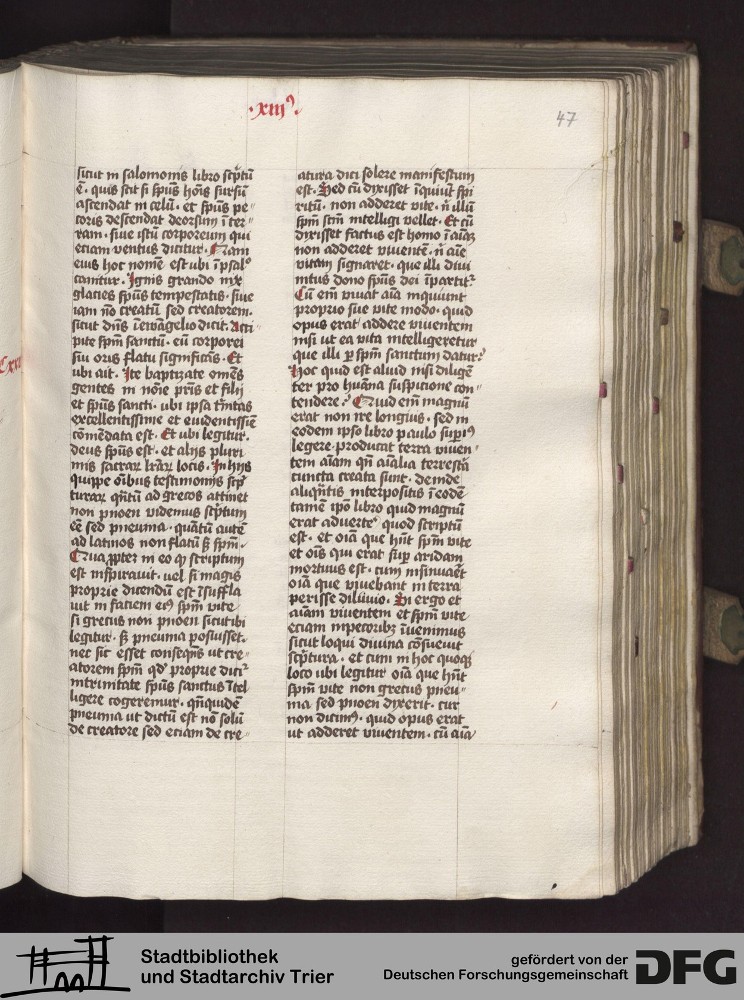 ·xiijꝰ·
47
sicut in salomonis libro scptū
ē · quis scit si spūs hoīs sursū
ascendat in celū · et spūs pe
coris descendat deorsum ī ter
ram · siue istū corporeum qui
eciam ventus dicitur · Nam
eius hoc nomē est ubi ī psalᵒ
cantitur · Ignis grando nyx
glacies spūs tempestatis · siue
iam nō creatū sed creatorem ·
sicut dn̄s ī ewāgelio dicit · Acci
pite spm̄ sanctū · eū corporei
sui oris flatu significās · Et
ubi ait · Ite baptizate omēs
gentes in noīe pr̄is et filij
et spūs sancti · ubi ipsa tⁱnitas
excellentissime et euidentissīe
cōmēdata est · Et ubi legitur ·
deus spūs est · et alijs pluri
mis sacraꝝ lrāꝝ locis · In hijs
quippe oībus testimonijs scⁱp
turaꝝ qn̄tū ad grecos attinet
non pnoen videmus scⁱptum
eē sed pneuma · quātū autē
ad latinos non flatū ꝫ spm̄ ·
Qua ꝓpter in eo qꝫ scriptum
est inspirauit · uel si magis
proprie dicendū est īsuffla
uit in faciem eiꝰ spm̄ vite
si grecus non pnoen sicut ibi
legitur · ꝫ pneuma posuisset ·
nec sic esset conseqn̄s ut cre
atorem spm̄ qd' proprie dicⁱᵗ
in trinitate spūs sanctus ītel
ligere cogeremur · qn̄quidē
pneuma ut dictū est nō solū
de creatore sed eciam de cre
atura dici solere manifestum
est · Sed cū dyxisset īquiūt spi
ritū · non adderet vite · ñ illū
spm̄ scm̄ intelligi vellet · Et cū
dyxisset factus est homo ī aīaꝫ
non adderet viuentē · ñ aīe
vitam signaret · que illi diui
nitus dono spūs dei īpartitʳ
Cū em̄ viuat aīa inquiunt
proprio sue vite modo · quid
opus erat addere viuentem
nisi ut ea vita intelligeretur
que illi ꝑ spm̄ sanctum datur ·
Hoc quid est aliud nisi diligē
ter pro huāna suspicione con
tendere · Quid em̄ magnū
erat non ire longius · sed in
eodem ipso libro paulo supⁱꝰ
legere · producat terra viuen
tem aīam qn̄ aīalia terrestⁱa
cuncta creata sunt · deinde
aliqn̄tis interpositis ī eodē
tamē ipō libro quid magnū
erat aduertēꝰ quod scriptū
est · et oīa que hn̄t spm̄ vite
et oīs qui erat suꝑ aridam
mortuus est · cum insinuaēt
oīa que viuebant in terra
perisse diluuio · Si ergo et
aīam viuentem et spm̄ vite
eciam in pecoribꝫ īuenimus
sicut loqui diuina cōsueuit
scⁱptura · et cum in hoc quoqꝫ
loco ubi legitur oīa que hn̄t
spm̄ vite non grecus pneu
ma sed pnoen dyxerit · cur
non dicimꝰ · quid opus erat
ut adderet viuentem · cū aīa
Stadtbibliothek
und Stadtarchiv Trier
gefördert von der
Deutschen Forschungsgemeinschaft
DFG